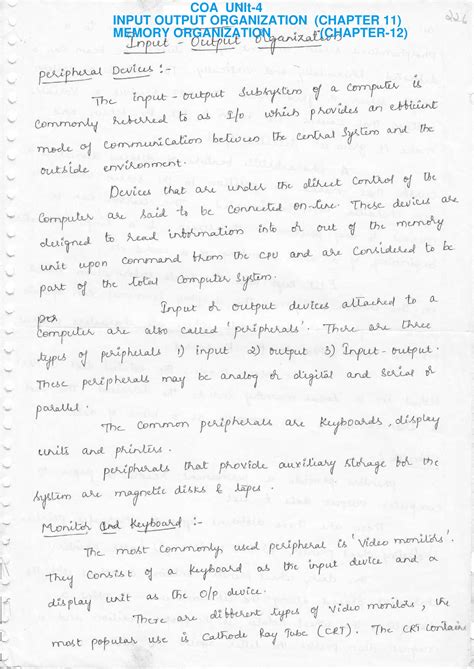 COA UNIt-4
INPUT OUTPUT ORGANIZATION (CHAPTER 11)
MEMORY ORGANIZATION (CHAPTER-12)
Input - Output Organization
peripheral Devices :-
The input - output Subsystem of a computer is
commonly referred to as I/o which provides an efficient
mode of communication between the central System and the
outside environment.
Devices that are under the direct Control of the
Computer are said to be Connected on-line. These devices are
designed to read information into or out of the memory
unit upon command from the CPU and are Considered to be
part of the total Computer System.
per
Input or output devices attached to a
Computer are also called 'peripherals'. There are three
types of peripherals 1) input 2) output 3) Input-output.
These peripherals may be analog or digital and Serial or
parallel.
The common peripherals are Keyboards, display
units and printers.
peripherals that provide auxiliary storage for the
System are magnetic disks & tapes.
Monitor and Keyboard :-
The most Commonly used peripheral is 'Video monitors'.
They Consist of a Keyboard as the input device and a
display unit as the O/p device.
There are different types of Video monitors, the
most popular use is Cathode Ray Tube (CRT). The CRT Contains